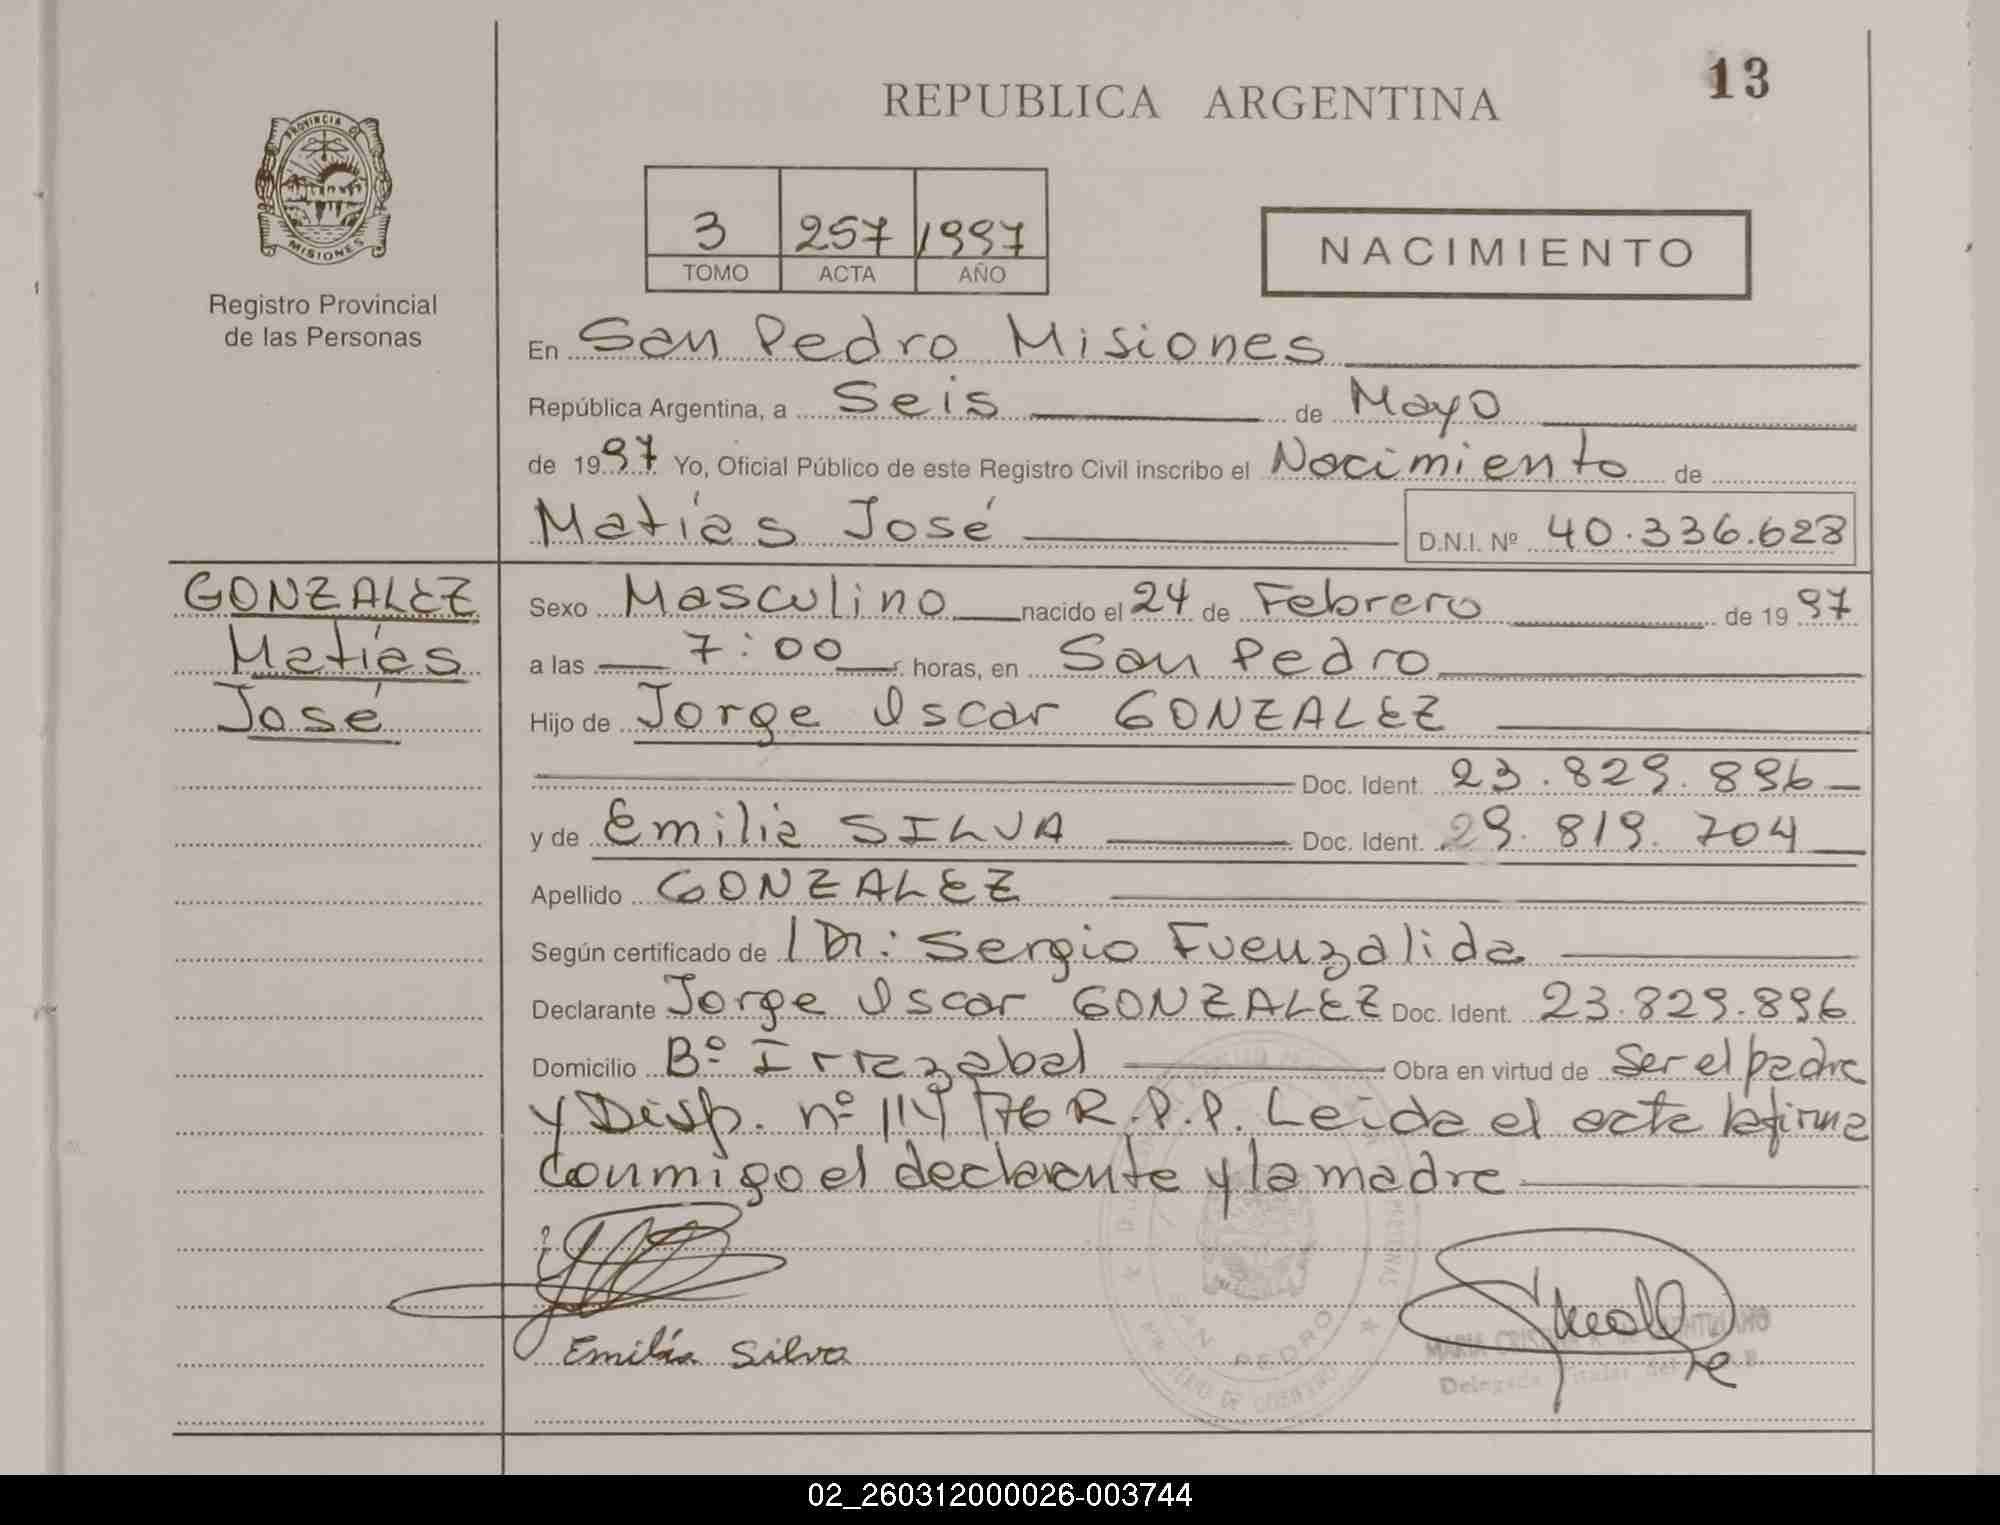 13
REPUBLICA ARGENTINA
PROVINCIA DE
MISIONES
Registro Provincial
de las Personas
3 257 1997
TOMO ACTA AÑO
NACIMIENTO
En San Pedro Misiones
República Argentina, a Seis de Mayo
de 1997 Yo, Oficial Público de este Registro Civil inscribo el Nacimiento de
Matías José D.N.I. Nº 40.336.628
GONZALEZ
Matías
José
Sexo Masculino nacido el 24 de Febrero de 1997
a las 7:00 horas, en San Pedro
Hijo de Jorge Oscar GONZALEZ
Doc. Ident. 23.829.896
y de Emilia SILVA Doc. Ident. 29.819.704
Apellido GONZALEZ
Según certificado de Dr: Sergio Fuenzalida
Declarante Jorge Oscar GONZALEZ Doc. Ident. 23.829.896
Domicilio Bº Irrazabal Obra en virtud de Ser el padre
y Disp. nº 114/76 R.P.P. Leida el acta la firma
conmigo el declarante y la madre
Emilia Silva
SAN PEDRO
MARIA CRISTINA
Delegada Titular del
02_260312000026-003744